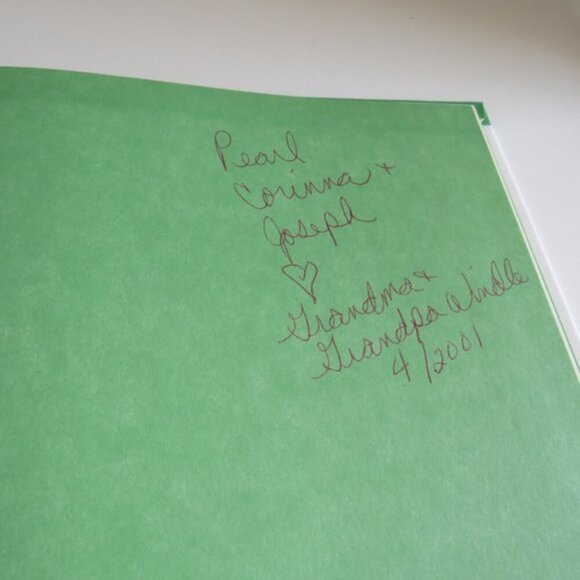 Pearl
Corinna +
Joseph
♡
Grandma +
Grandpa Windle
4/2001